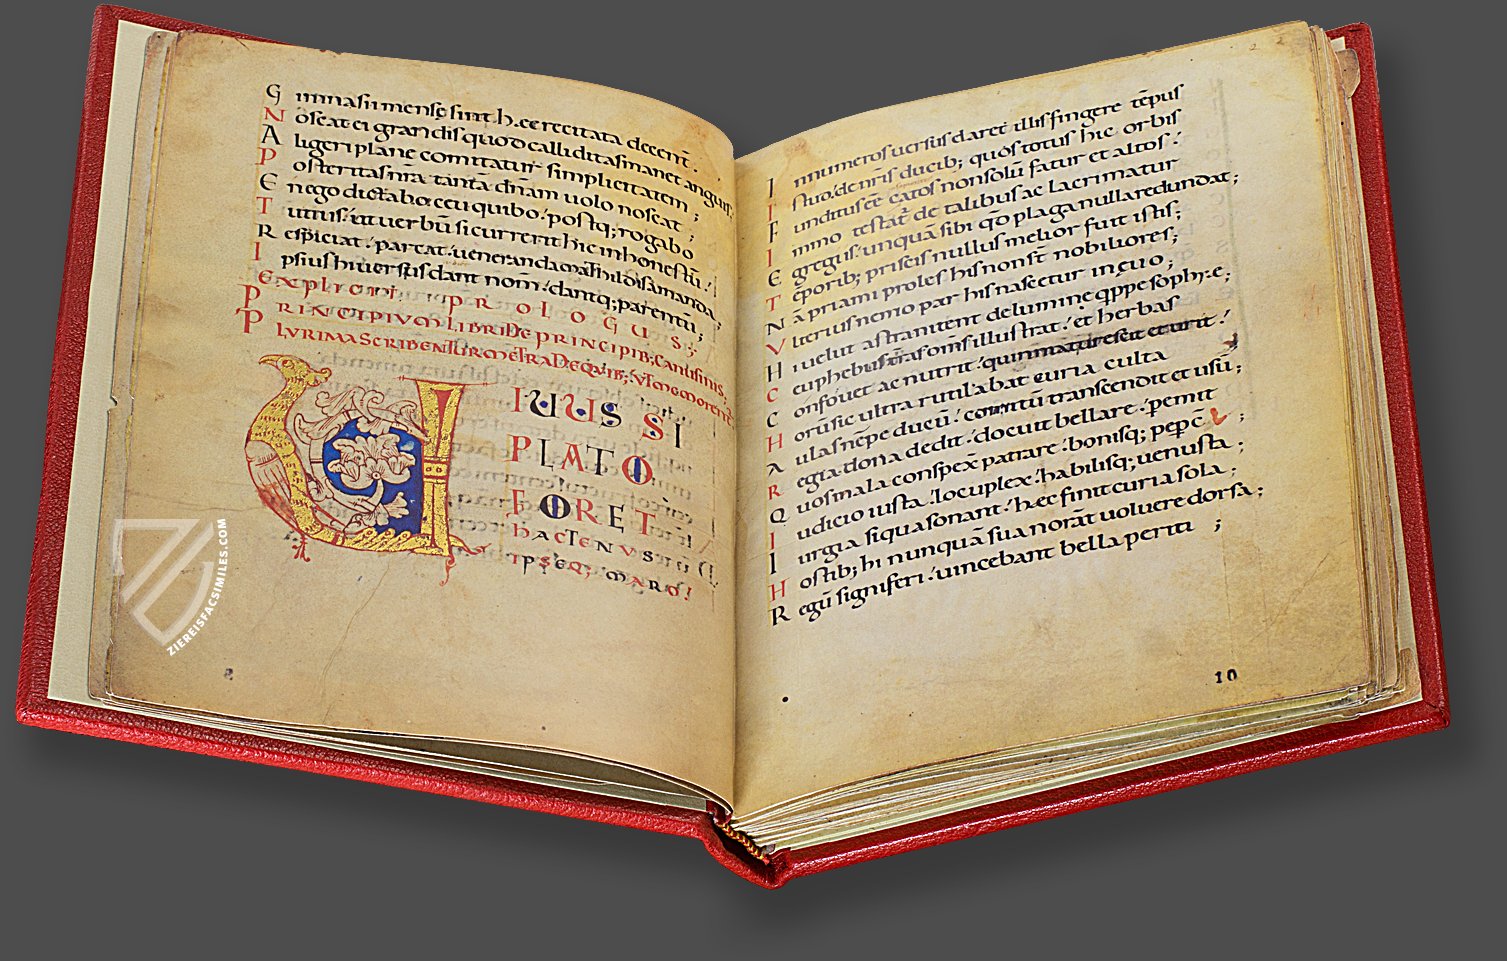 G immasii mensę sint hęc recitata decent.
N oscat ei grandis quod calliditas manet anguis;
A ligeri planę comitatur simplicitatem;
P osteritas nr̄a tantā dn̄am uolo noscat;
E nego dictabo ceu quibo. postq; rogabo
T utius. ut uerbū si currerit hic inhonestū.
R espiciat. parcat. ueneranda mathildis amanda;
I psius hi uersus dant nom̄. dantq; parentū;
EXPLICIT PROLOGUS;
PRINCIPIUM LIBRI DE PRINCIPIB; CANUSINIS;
PLURIMA SCRIBENTUR METRA DE QUIB; UT MEMORENT̄
IUUS SI
PLATO
FORET
HACTENUS
IPSEQ; MARO!
I nnumeros uersus daret illis fingere tēpus
I stuo. de nr̄is ducib; quos totus hic orbis
F unditus ēē catos non solū fatur et altos.
I mmo testat̄ de talibus ac lacrimatur
E gregiis. unquā sibi qđ plaga nulla redundat;
T ēporib; priscis nullus melior fuit istis;
N ā priami proles his non st̄ nobiliores;
V lterius nemo par his nascetur in ęuo;
H i uelut astra nitent de lumine q̄ppe sophiæ;
C eu phebus astra om̄s illustrat. et herbas
C onfouet ac nutrit. quin maturescit et urit.
H orū sic ultra rutilabat curia culta
A ula snēpe ducū. comitū transcendit et usū;
R egia dona dedit. docuit bellare. p̱emit
Q uos mala conspex̄ patrare. bonisq; pep̱c̄;
I udicio iusta. locuplex. habilisq; uenusta;
I urgia siqua sonant. hæc finit curia sola;
H ostib; hi nunquā sua norāt uoluere dorsa;
R egū signiferi. uincebant bella periti;
10
ZIEREISFACSIMILES.COM